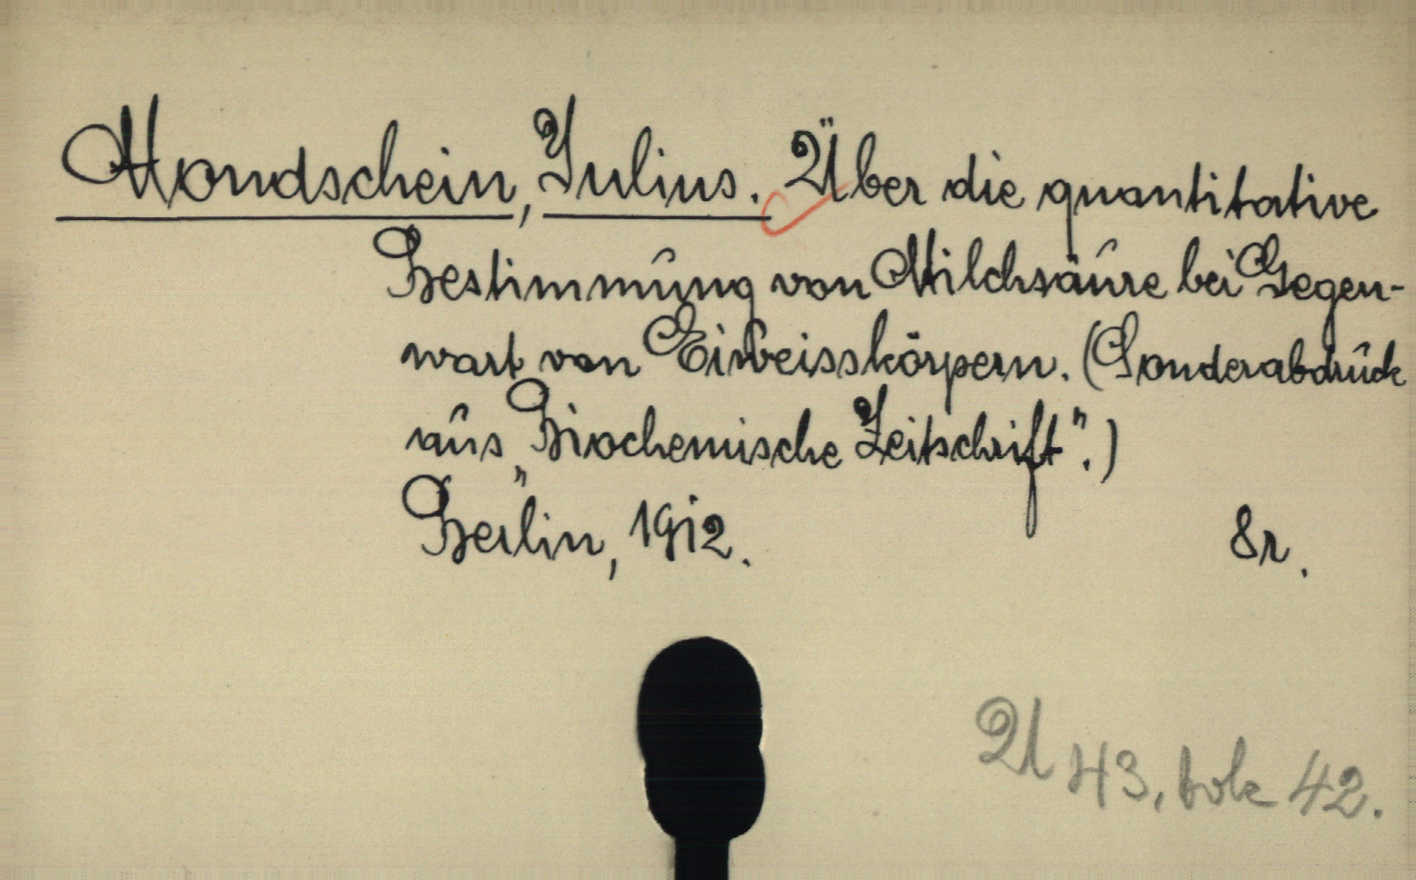 Mondschein, Julius. Über die quantitative
Bestimmung von Milchsäure bei Gegen-
wart von Eiweisskörpern. (Sonderabdruck
aus „Biochemische Zeitschrift".)
Berlin, 1912. 8r.
U 43, tok 42.